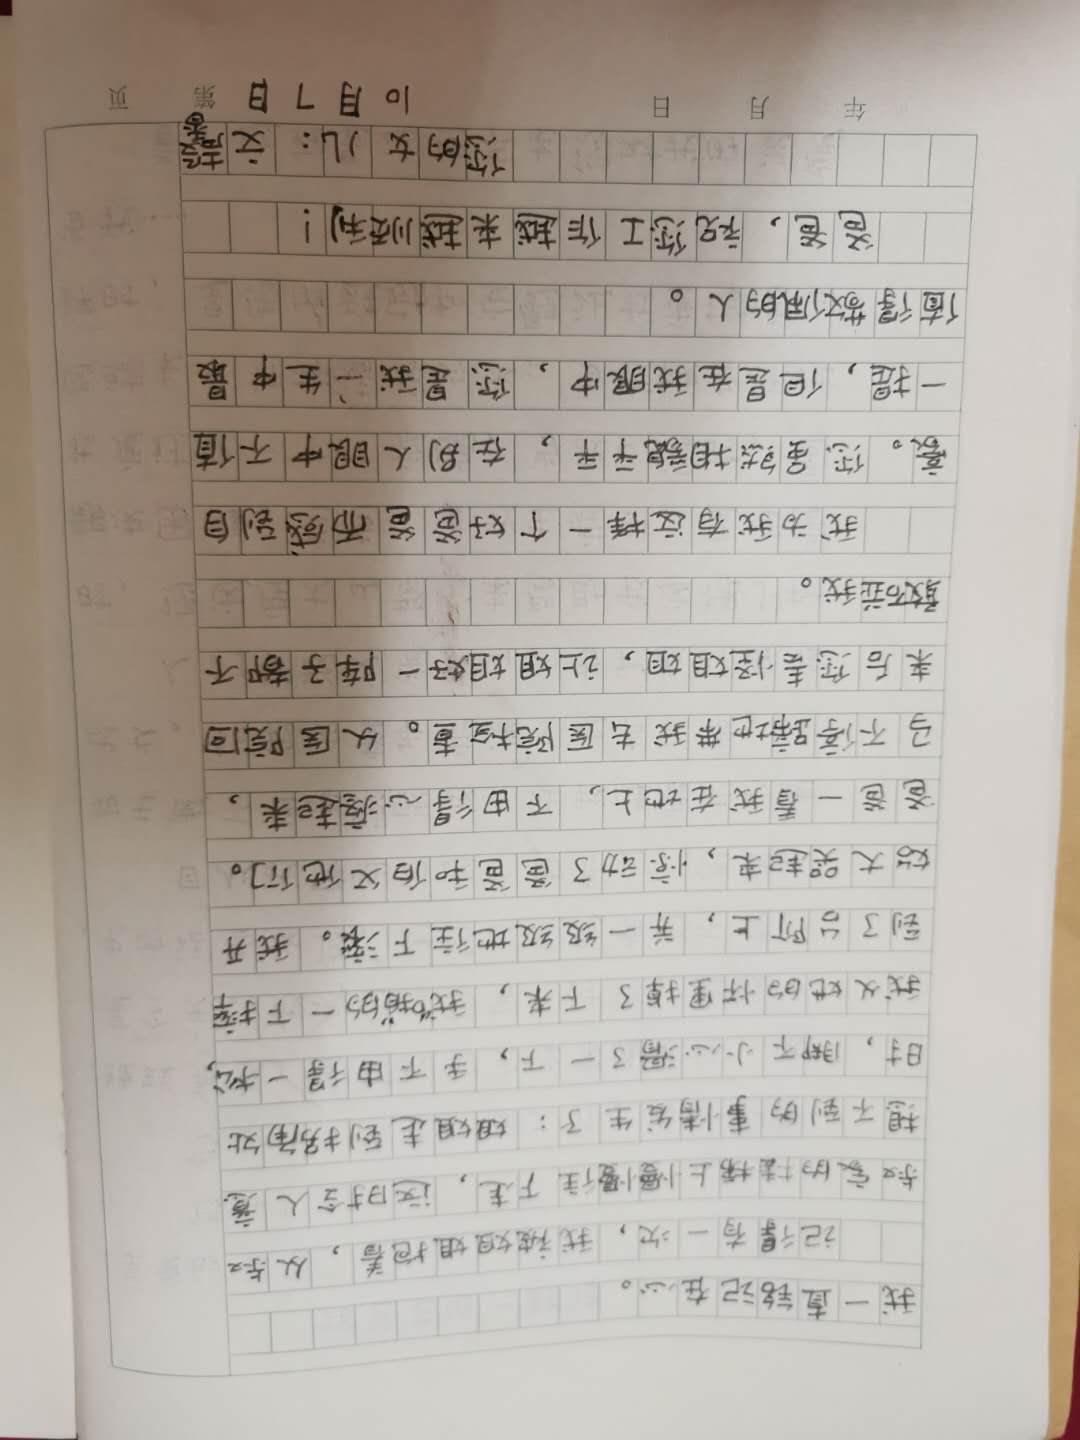 我一直铭记在心。
记得有一次，我被姐姐抱着，从叔
叔家的楼梯上慢慢往下走，这时令人意
想不到的事情发生了：姐姐走到拐角处
时，脚不小心滑了一下，手不由得一松，
我从她的怀里掉了下来，我“啪”的一下摔
到了台阶上，并一级级地往下滚。我开
始大哭起来，惊动了爸爸和伯父他们。
爸爸一看我在地上，不由得心疼起来，
马不停蹄地带我去医院检查。从医院回
来后您责怪姐姐，让姐姐好一阵子都不
敢碰我。
我为我有这样一个好爸爸而感到自
豪。您虽然相貌平平，在别人眼中不值
一提，但是在我眼中，您是我一生中最
值得敬佩的人。
爸爸，祝您工作越来越顺利！
您的女儿：文
年 月 日 10月7日 第 页